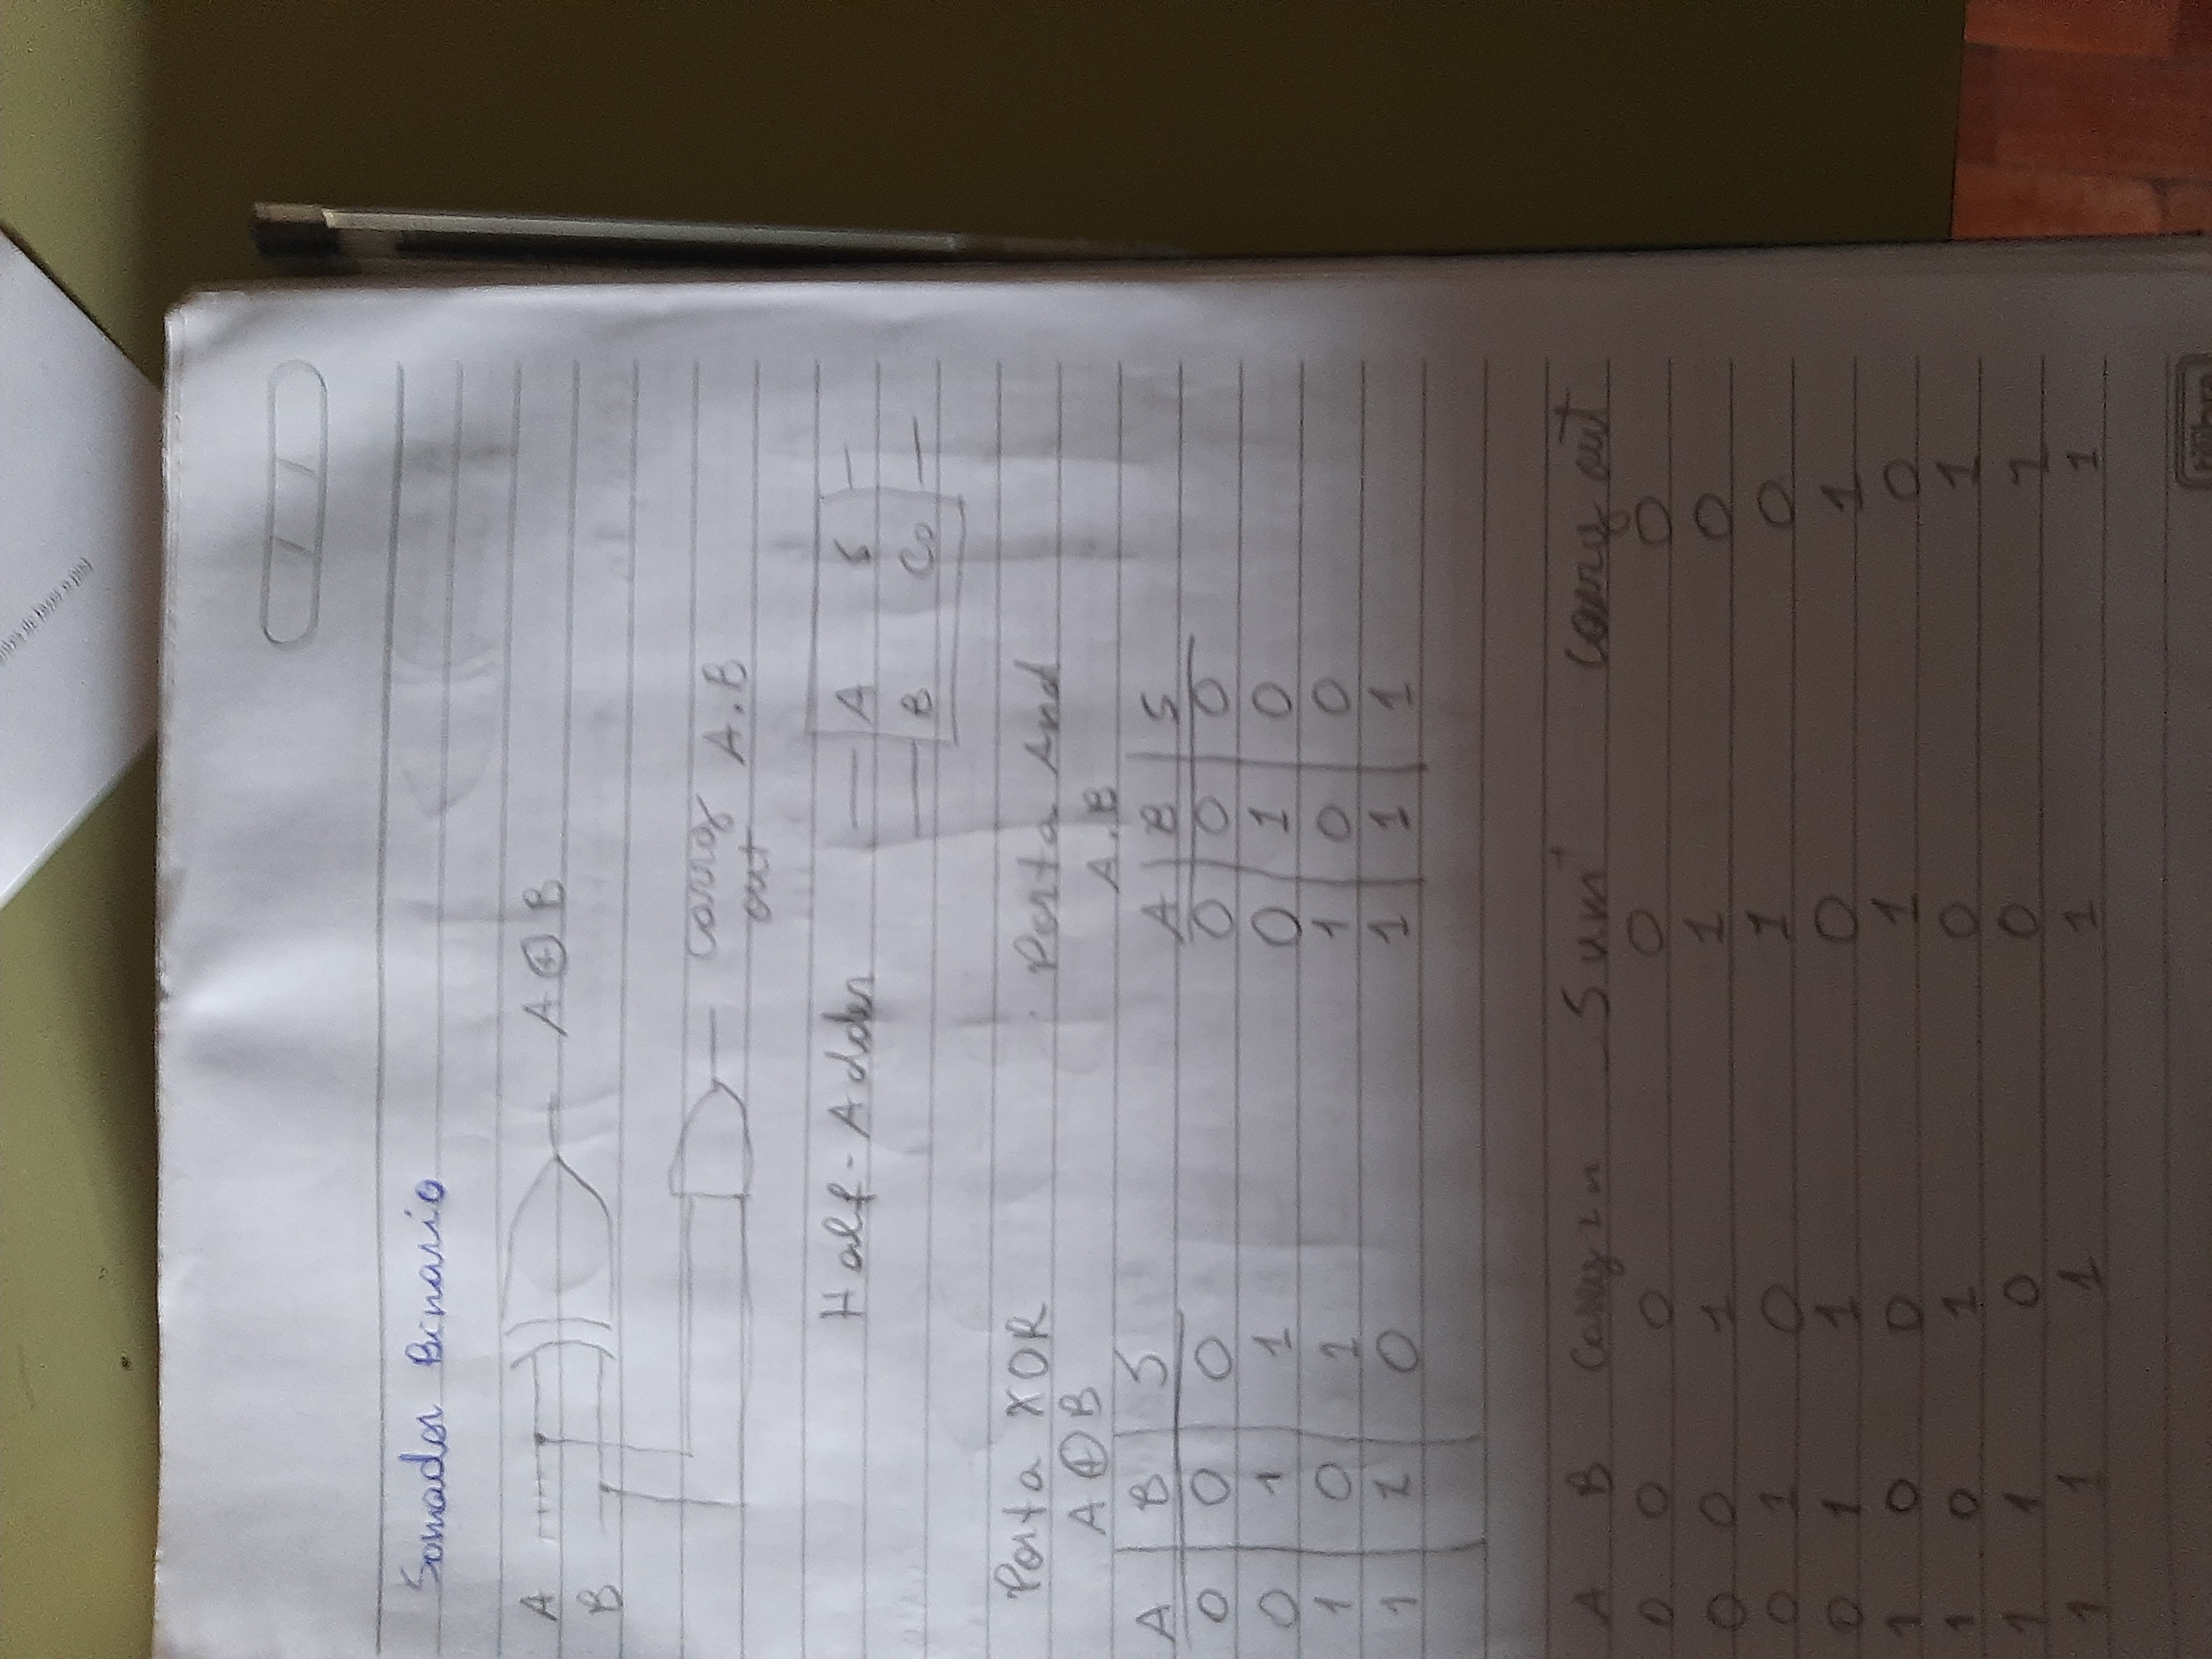 Somador Binario
A
B
A ⊕ B
carry A.B
out
Half-Adder
A S
B Co
Porta XOR
A ⊕ B
A B S
0 0 0
0 1 1
1 0 1
1 1 0
Porta And
A.B
A B S
0 0 0
0 1 0
1 0 0
1 1 1
A B Carry in Sum Carry out
0 0 0 0 0
0 0 1 1 0
0 1 0 1 0
0 1 1 0 1
1 0 0 1 0
1 0 1 0 1
1 1 0 0 1
1 1 1 1 1
tilibra